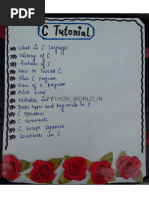 C Tutorial
What is C language
History of C
Features of C
How to install C
First C program
Flow of C program
Printf scanf
Variables in C
PYTHON_WORLD_IN
Data types and keywords in C
C operators
C comments
C Escape Sequence
Constants in C